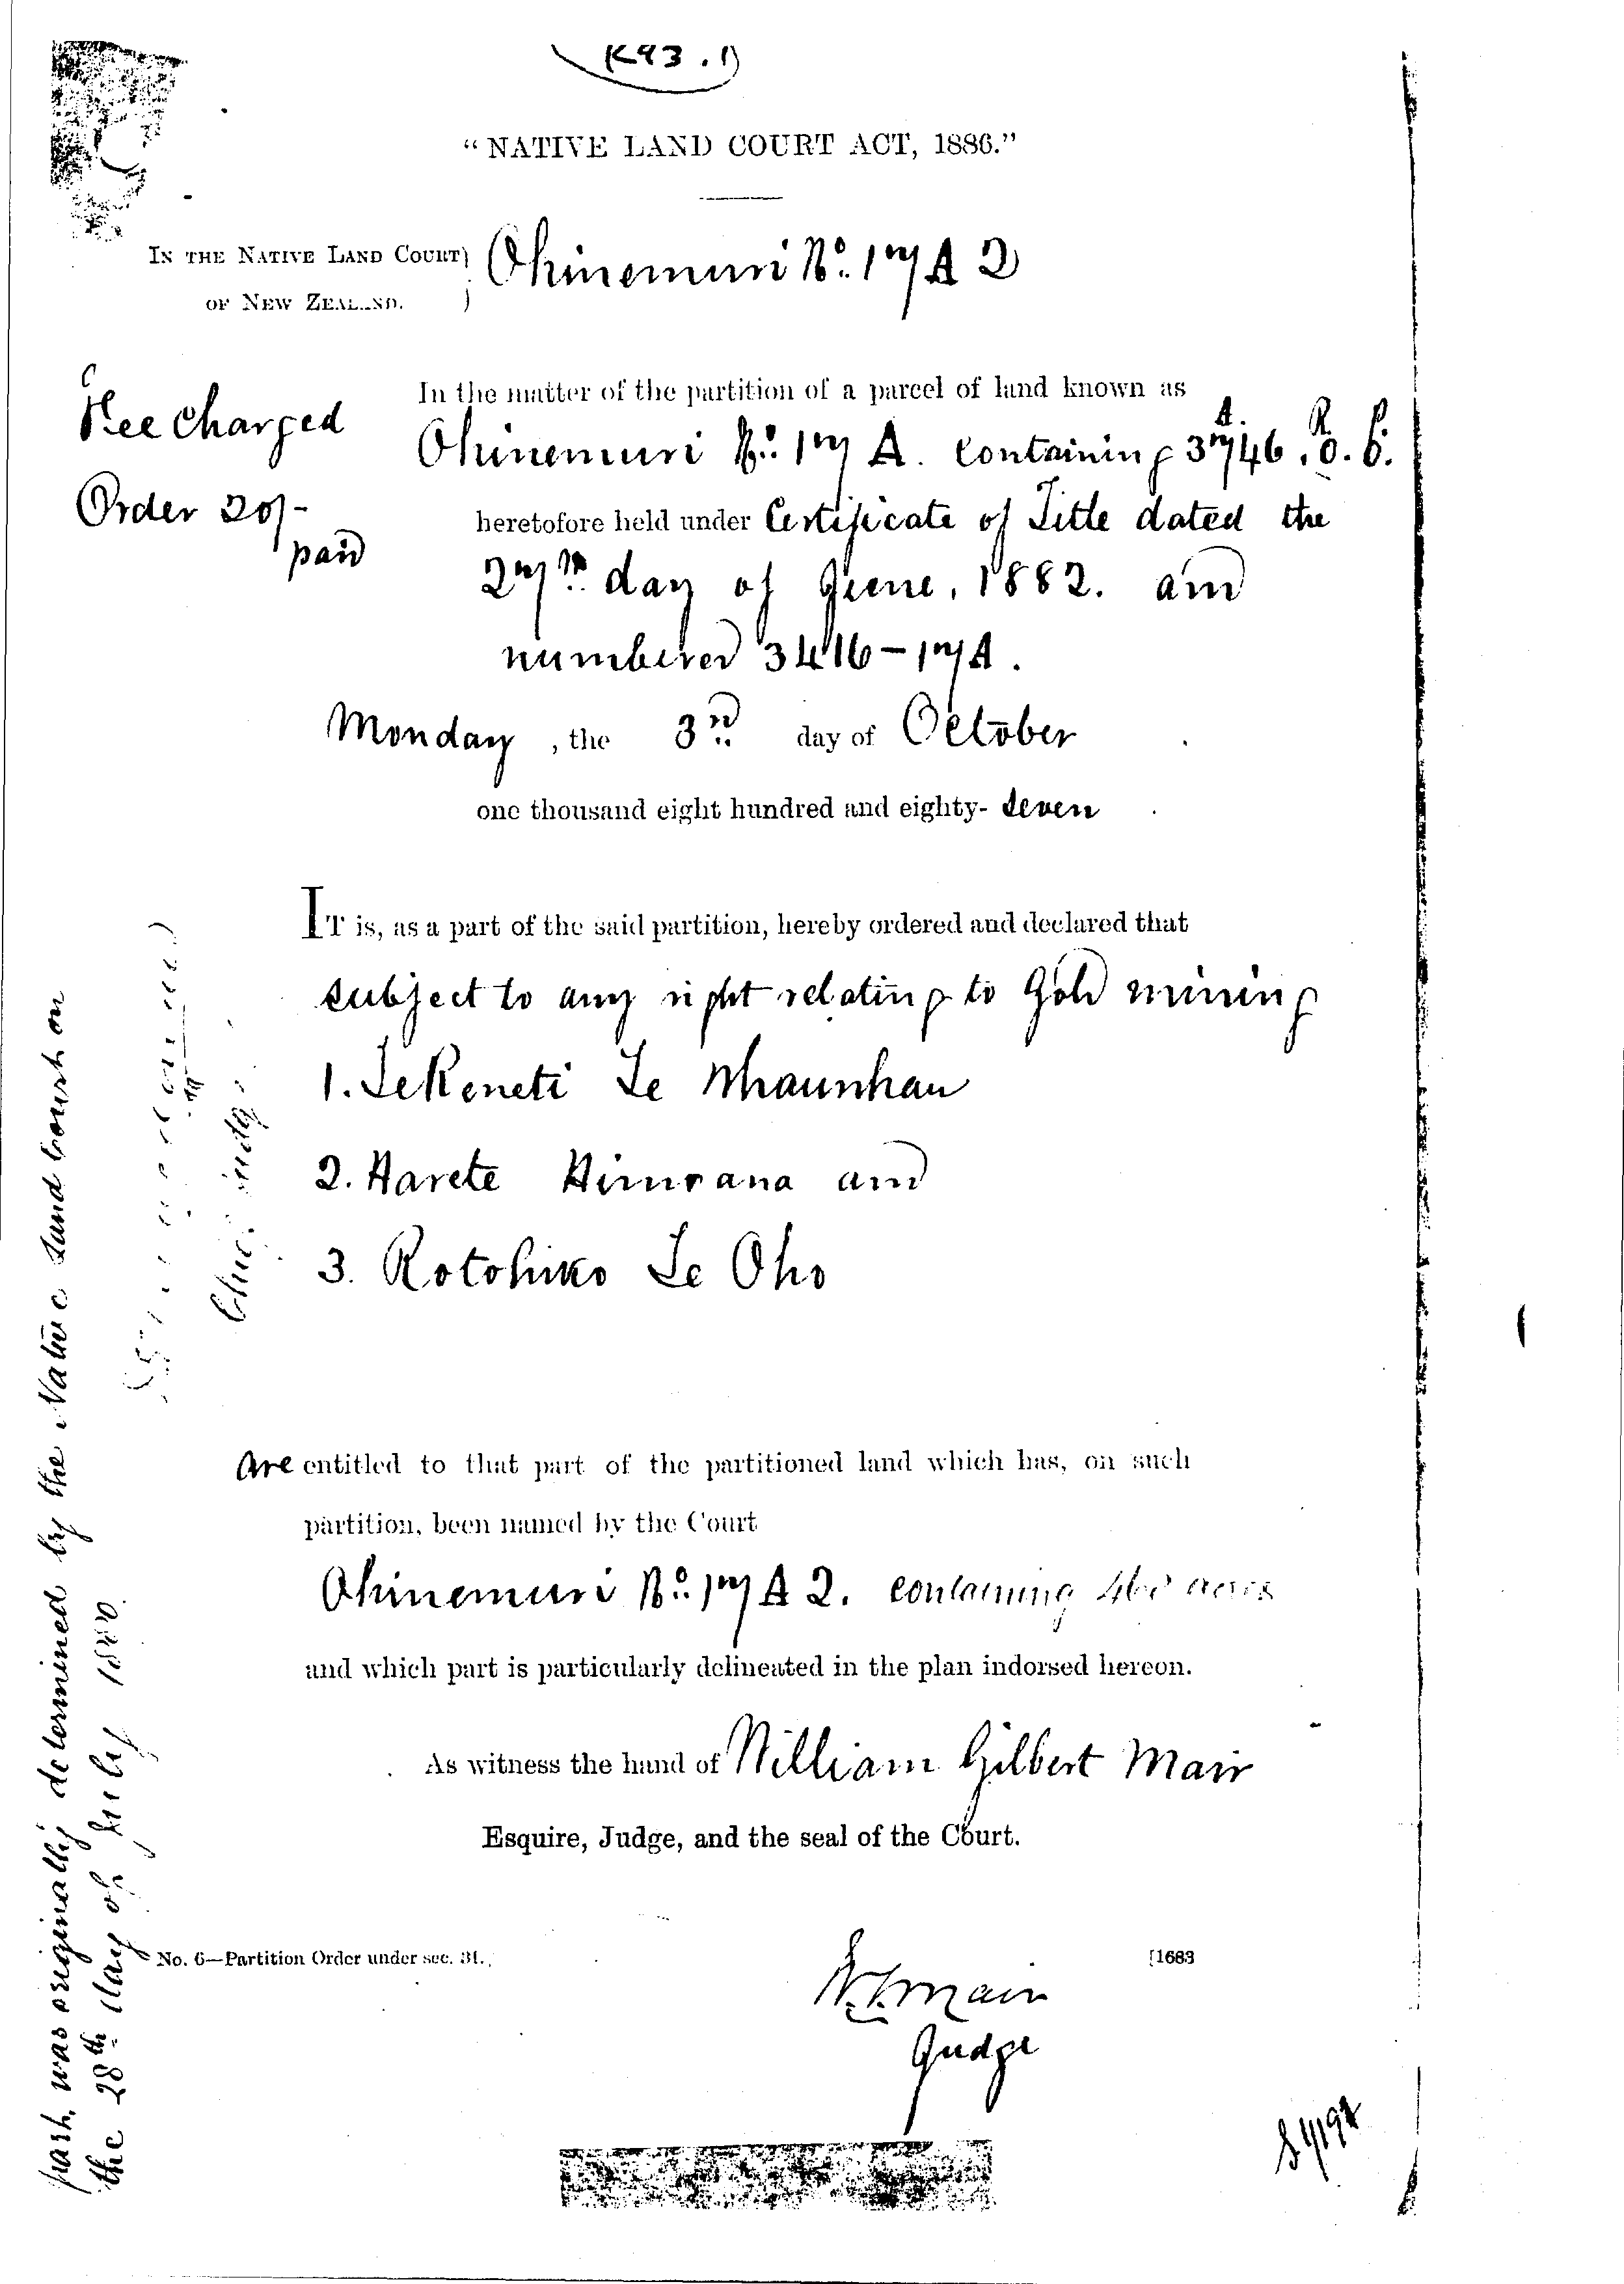 K93.1
"NATIVE LAND COURT ACT, 1886."
IN THE NATIVE LAND COURT
OF NEW ZEALAND.
Ohinemuri No. 17 A 2
Fee Charged
Order 20/-
paid
In the matter of the partition of a parcel of land known as
A. R. P.
Ohinemuri No. 17 A. containing 3746. 0. 6.
heretofore held under Certificate of Title dated the
27th day of June, 1882. and
numbered 3416-17A.
Monday, the 3rd day of October
one thousand eight hundred and eighty-seven
IT is, as a part of the said partition, hereby ordered and declared that
subject to any right relating to Gold mining
1. Te Keneti Te Whaunhau
2. Harete Himurana and
3. Rotohiko Te Oho
are entitled to that part of the partitioned land which has, on such
partition, been named by the Court
Ohinemuri No. 17 A 2. containing acres
and which part is particularly delineated in the plan indorsed hereon.
As witness the hand of William Gilbert Mair
Esquire, Judge, and the seal of the Court.
No. 6—Partition Order under sec. 31.
[1683
W.G. Mair
Judge
was originally determined by the Native Land Court on
the 28th day of July 1880
Chief Judge